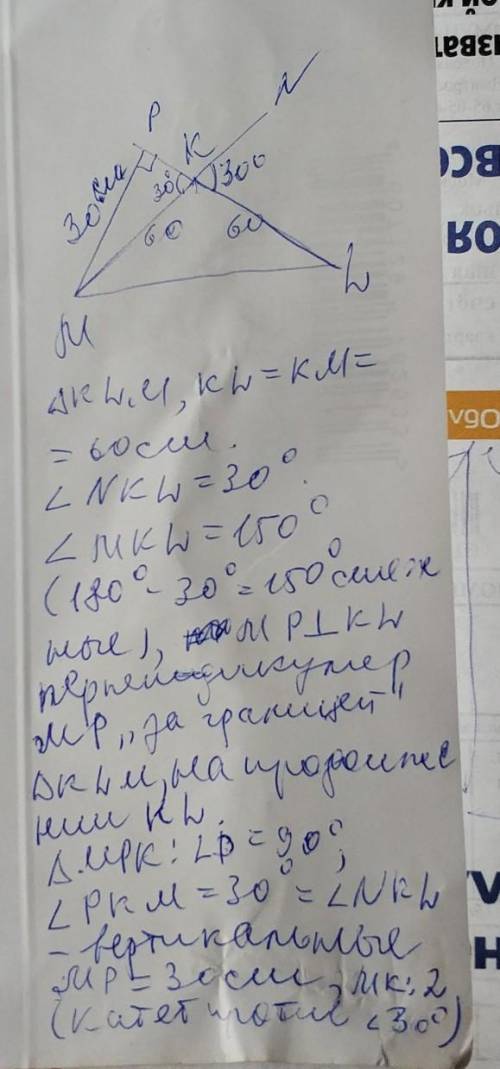 N
P
K
30 см
30°
30°
60
60
M
L
ΔKLM, KL = KM =
= 60 см.
∠NKL = 30°.
∠MKL = 150°
(180° - 30° = 150° смеж
ные), MP⊥KL
перпендикуляр
MP „за границей“
ΔKLM, на продолже
нии KL.
Δ MPK: ∠P = 90°,
∠PKM = 30° = ∠NKL
- вертикальные
MP = 30 см, MK:2
(катет против ∠30°)
зват
ВСО
ОЯ
Обу